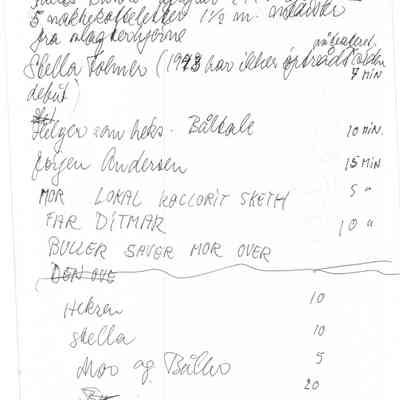 5 nakkekoteletter 1½ m.
fra slagterhjørne
Stella Holmer (1993 har ikke optrådt siden
debut) 7 MIN
Helger som heks. Båltale 10 MIN.
Jørgen Andersen 15 MIN
MOR LOKAL KOLLORIT SKETH 5 "
FAR DITMAR 10 "
BULLER SAVER MOR OVER
DEN OVE
Heksen 10
Stella 10
Moo og Bålhs 5
20